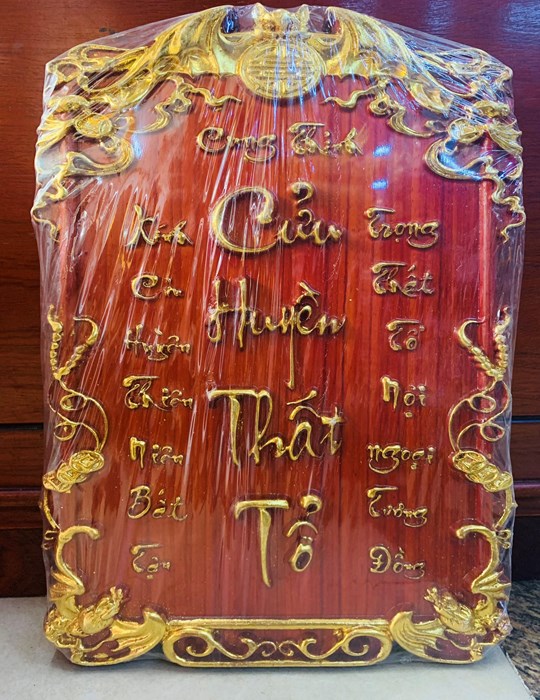 Cung Thỉnh
Cửu Huyền Thất Tổ
Kính Cửu Huyền Thiên Niên Bất Tận
Trọng Thất Tổ Nội ngoại Tương Đồng